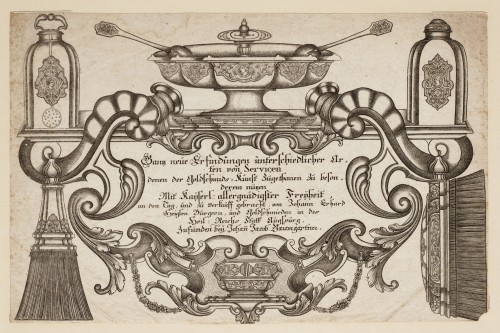 Gantz neue Erfindungen unterschiedlicher Ar-
ten von Servicen
denen der Goldschmids-Kunst Zugethanen zu beson,
derem nutzen
Mit Kaÿserl: allergnädigster Freÿheit
an den Tag, und zu verkauff gebracht, von Johann Erhard
Heiglen Burgern, und Goldschmieden in der
Heil: Reichs Statt Augspurg.
Zufinden beÿ Johan Jacob Baumgartner.